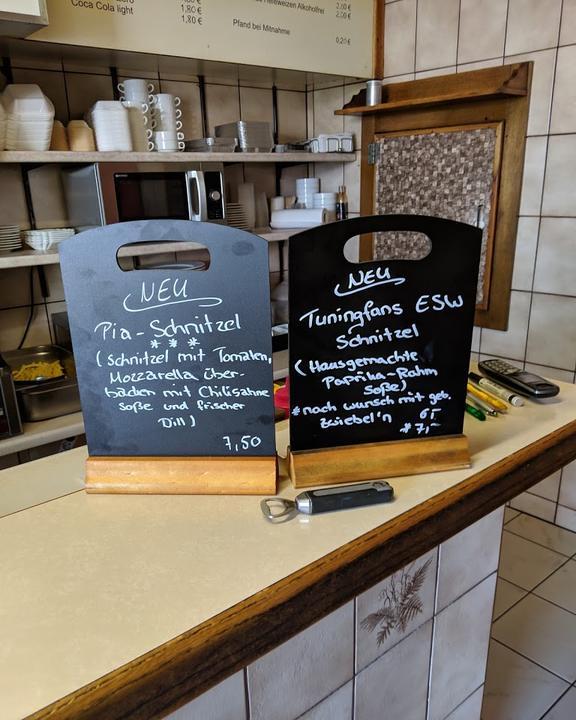 Coca Cola light
1,80 €
1,80 €
Hefeweizen Alkoholfrei
2,00 €
Pfand bei Mitnahme
0,20 €
NEU
Pia-Schnitzel
* * *
(Schnitzel mit Tomaten,
Mozzarella über-
backen mit Chilisahne
Soße und frischer
Dill)
7,50
NEU
Tuningfans ESW
Schnitzel
(Hausgemachte
Paprika-Rahm
Soße)
*nach wunsch mit geb.
zwiebel'n 6,-
*7,-